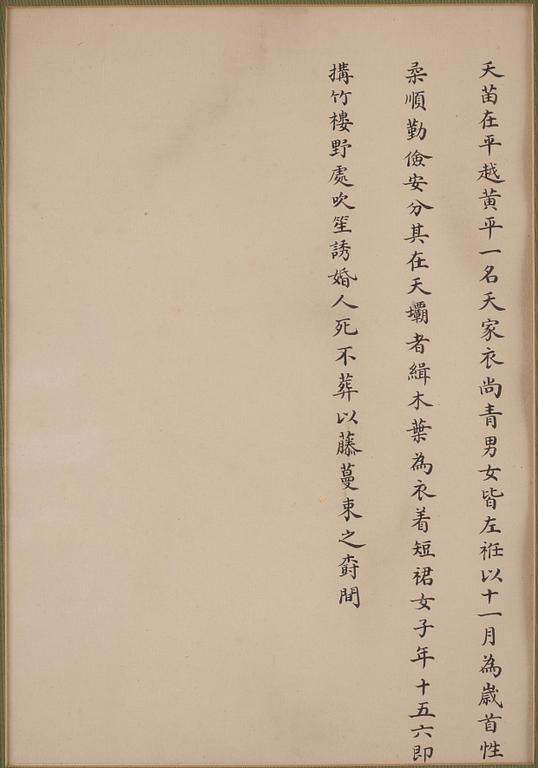 夭苗在平越黄平一名夭家衣尚青男女皆左袵以十一月為歳首性
柔順勤儉安分其在天壩者緝木葉為衣着短裙女子年十五六即
搆竹樓野處吹笙誘婚人死不葬以藤蔓束之樹間